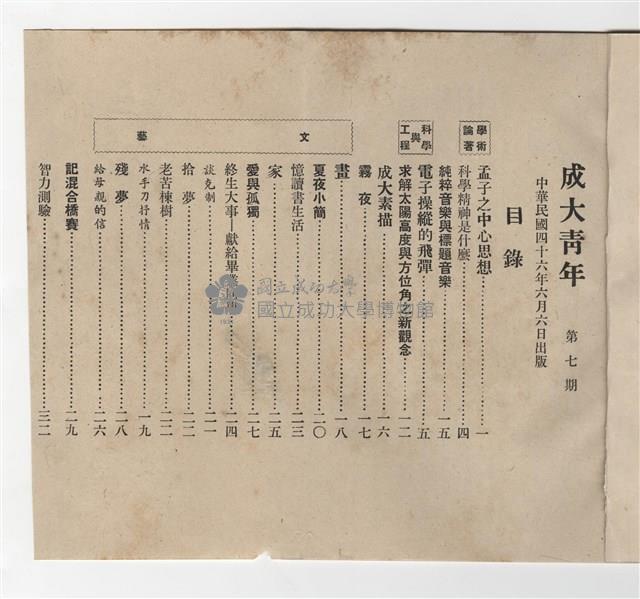 成大青年 第七期
中華民國四十六年六月六日出版
目錄
學術論著
孟子之中心思想 一
科學精神是什麼 四
純粹音樂與標題音樂 一五
科學與工程
電子操縱的飛彈 五
求解太陽高度與方位角之新觀念 一二
文藝
成大素描 一六
霧夜 一七
畫 一八
夏夜小簡 二〇
憶讀書生活 二三
家 二五
愛與孤獨 二七
終生大事—獻給畢業
二四
談克制 二一
拾夢 二二
老苦楝樹 二二
水手刀抒情 一九
殘夢 二八
給母親的信 二六
記混合橋賽 二九
智力測驗 三二
國立成功大學
國立成功大學博物館